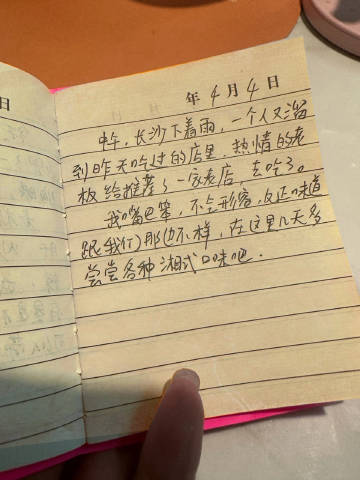 日
年 4 月 4 日
中午，长沙下着雨，一个人又溜
到昨天吃过的店里，热情的老
板给推荐了一家老店，去吃了。
我嘴巴笨，不会形容，反正味道
跟我们那边不一样，在这里几天多
尝尝各种湘式口味吧.